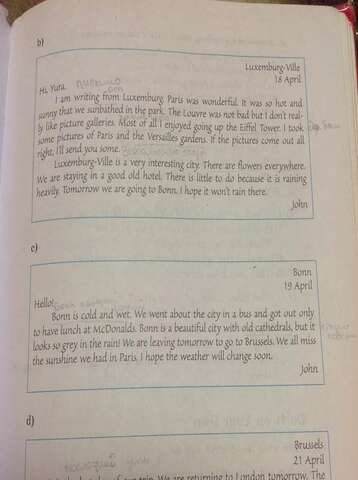 b)
Luxemburg-Ville
18 April
Hi, Yura.
I am writing from Luxemburg. Paris was wonderful. It was so hot and
sunny that we sunbathed in the park. The Louvre was not bad but I don't real-
ly like picture galleries. Most of all I enjoyed going up the Eiffel Tower. I took
some pictures of Paris and the Versailles gardens. If the pictures come out all
right, I'll send you some.
Luxemburg-Ville is a very interesting city. There are flowers everywhere.
We are staying in a good old hotel. There is little to do because it is raining
heavily. Tomorrow we are going to Bonn. I hope it won't rain there.
John
c)
Bonn
19 April
Hello!
Bonn is cold and wet. We went about the city in a bus and got out only
to have lunch at McDonalds. Bonn is a beautiful city with old cathedrals, but it
looks so grey in the rain! We are leaving tomorrow to go to Brussels. We all miss
the sunshine we had in Paris. I hope the weather will change soon.
John
d)
Brussels
21 April
of our trip. We are returning to London tomorrow. The